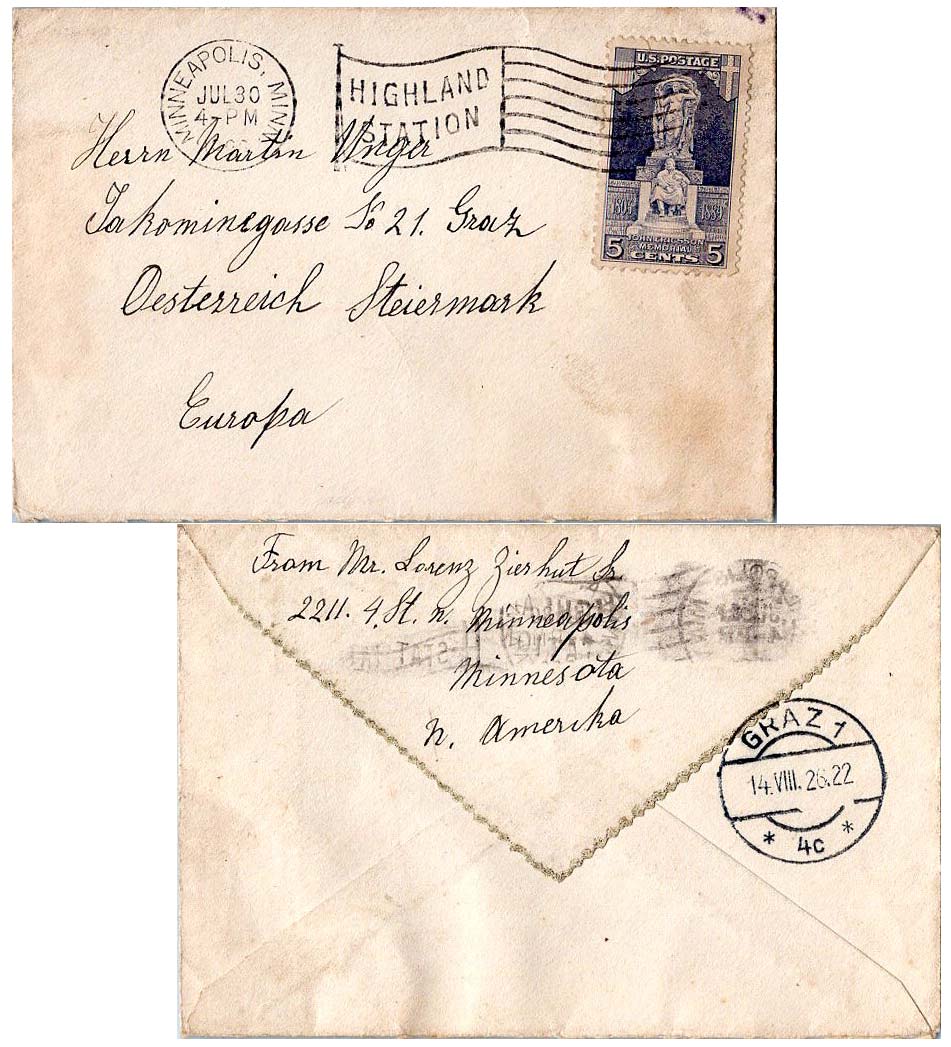 MINNEAPOLIS, MINN.
JUL 30
4-PM
HIGHLAND
STATION
U.S. POSTAGE
1804 1889
JOHN ERICSSON
MEMORIAL
5 CENTS 5
Herrn Martin Unger
Jakominegasse No 21. Graz
Oesterreich Steiermark
Europa
From Mr. Lorenz Zierhut
2211. 4. St. n. Minneapolis
Minnesota
n. Amerika
GRAZ 1
14.VIII.26.22
* 4c *